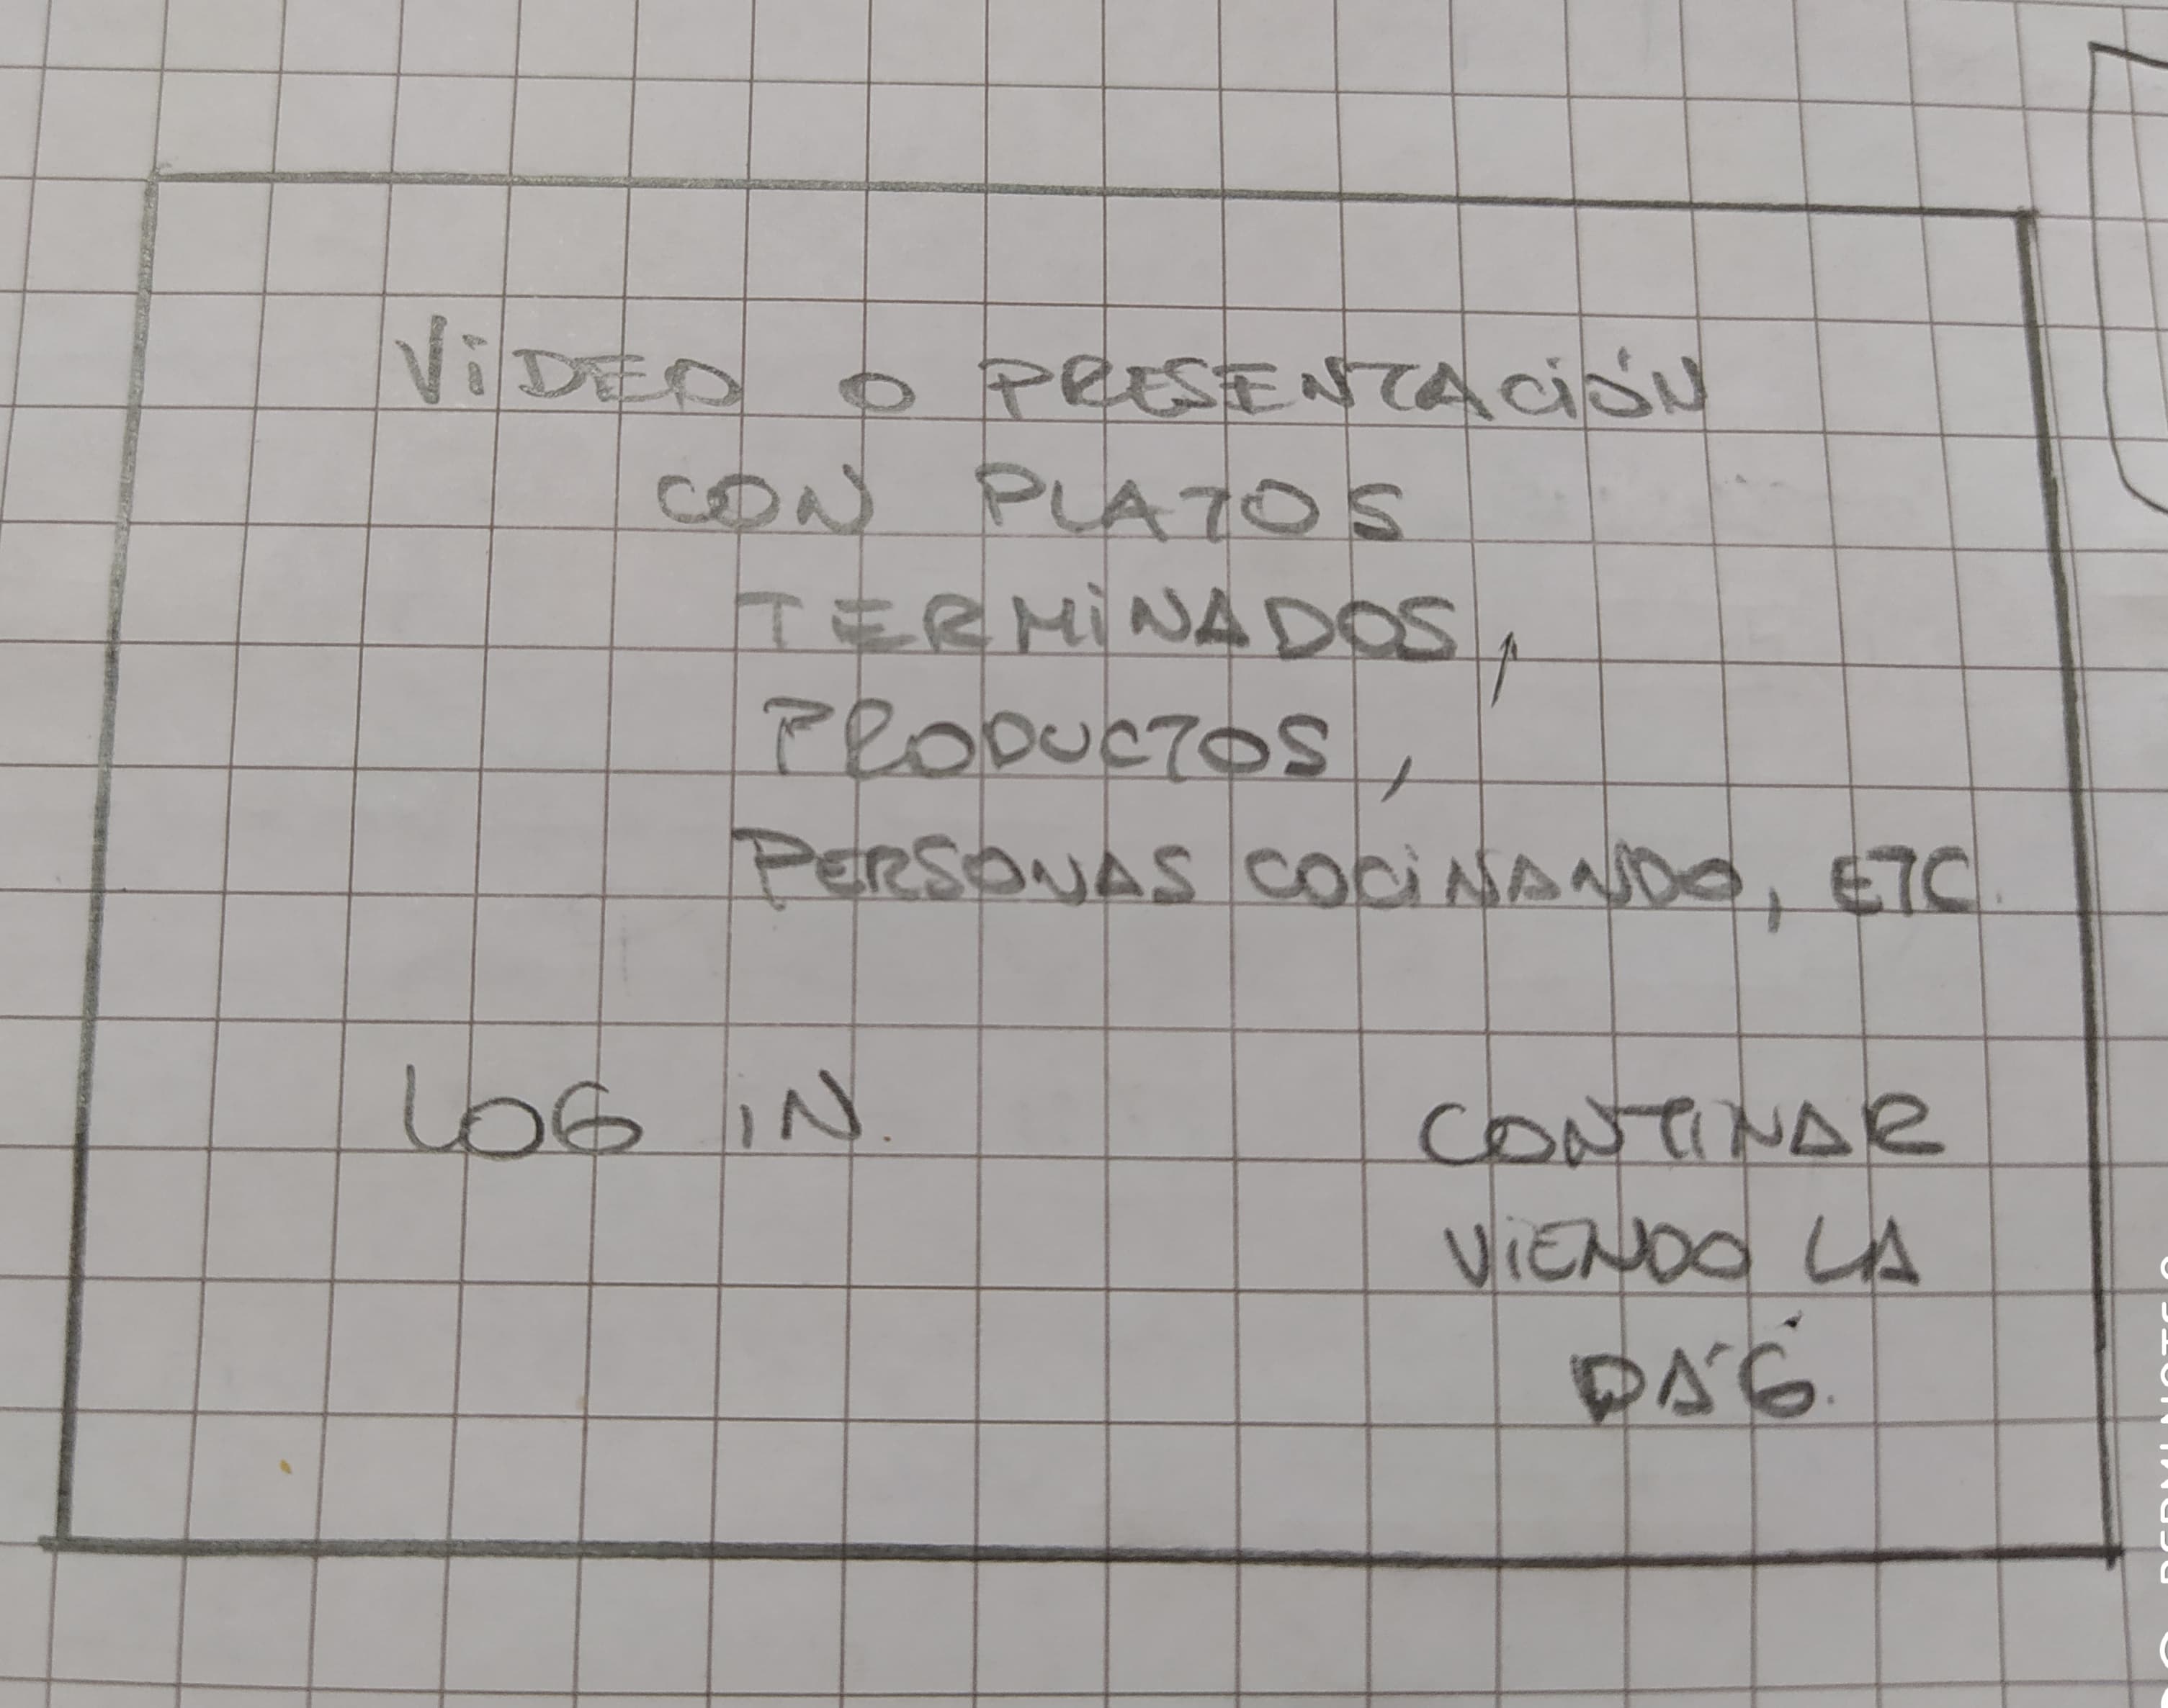 ViDEO O PRESENTACiÓN
CON PLATOS
TERMiNADOS,
PRODUCTOS,
PERSONAS COCiNANDO, ETC.
LOG iN.
CONTINAR
ViENDO LA
PÁG.